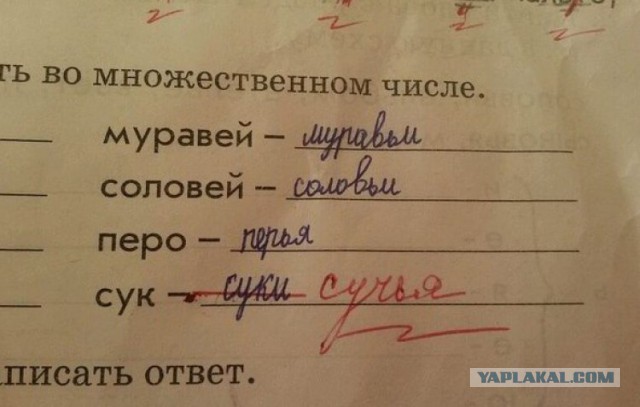 ть во множественном числе.
муравей – муравьи
соловей – соловьи
перо – перья
сук – суки сучья
писать ответ.
YAPLAKAL.COM